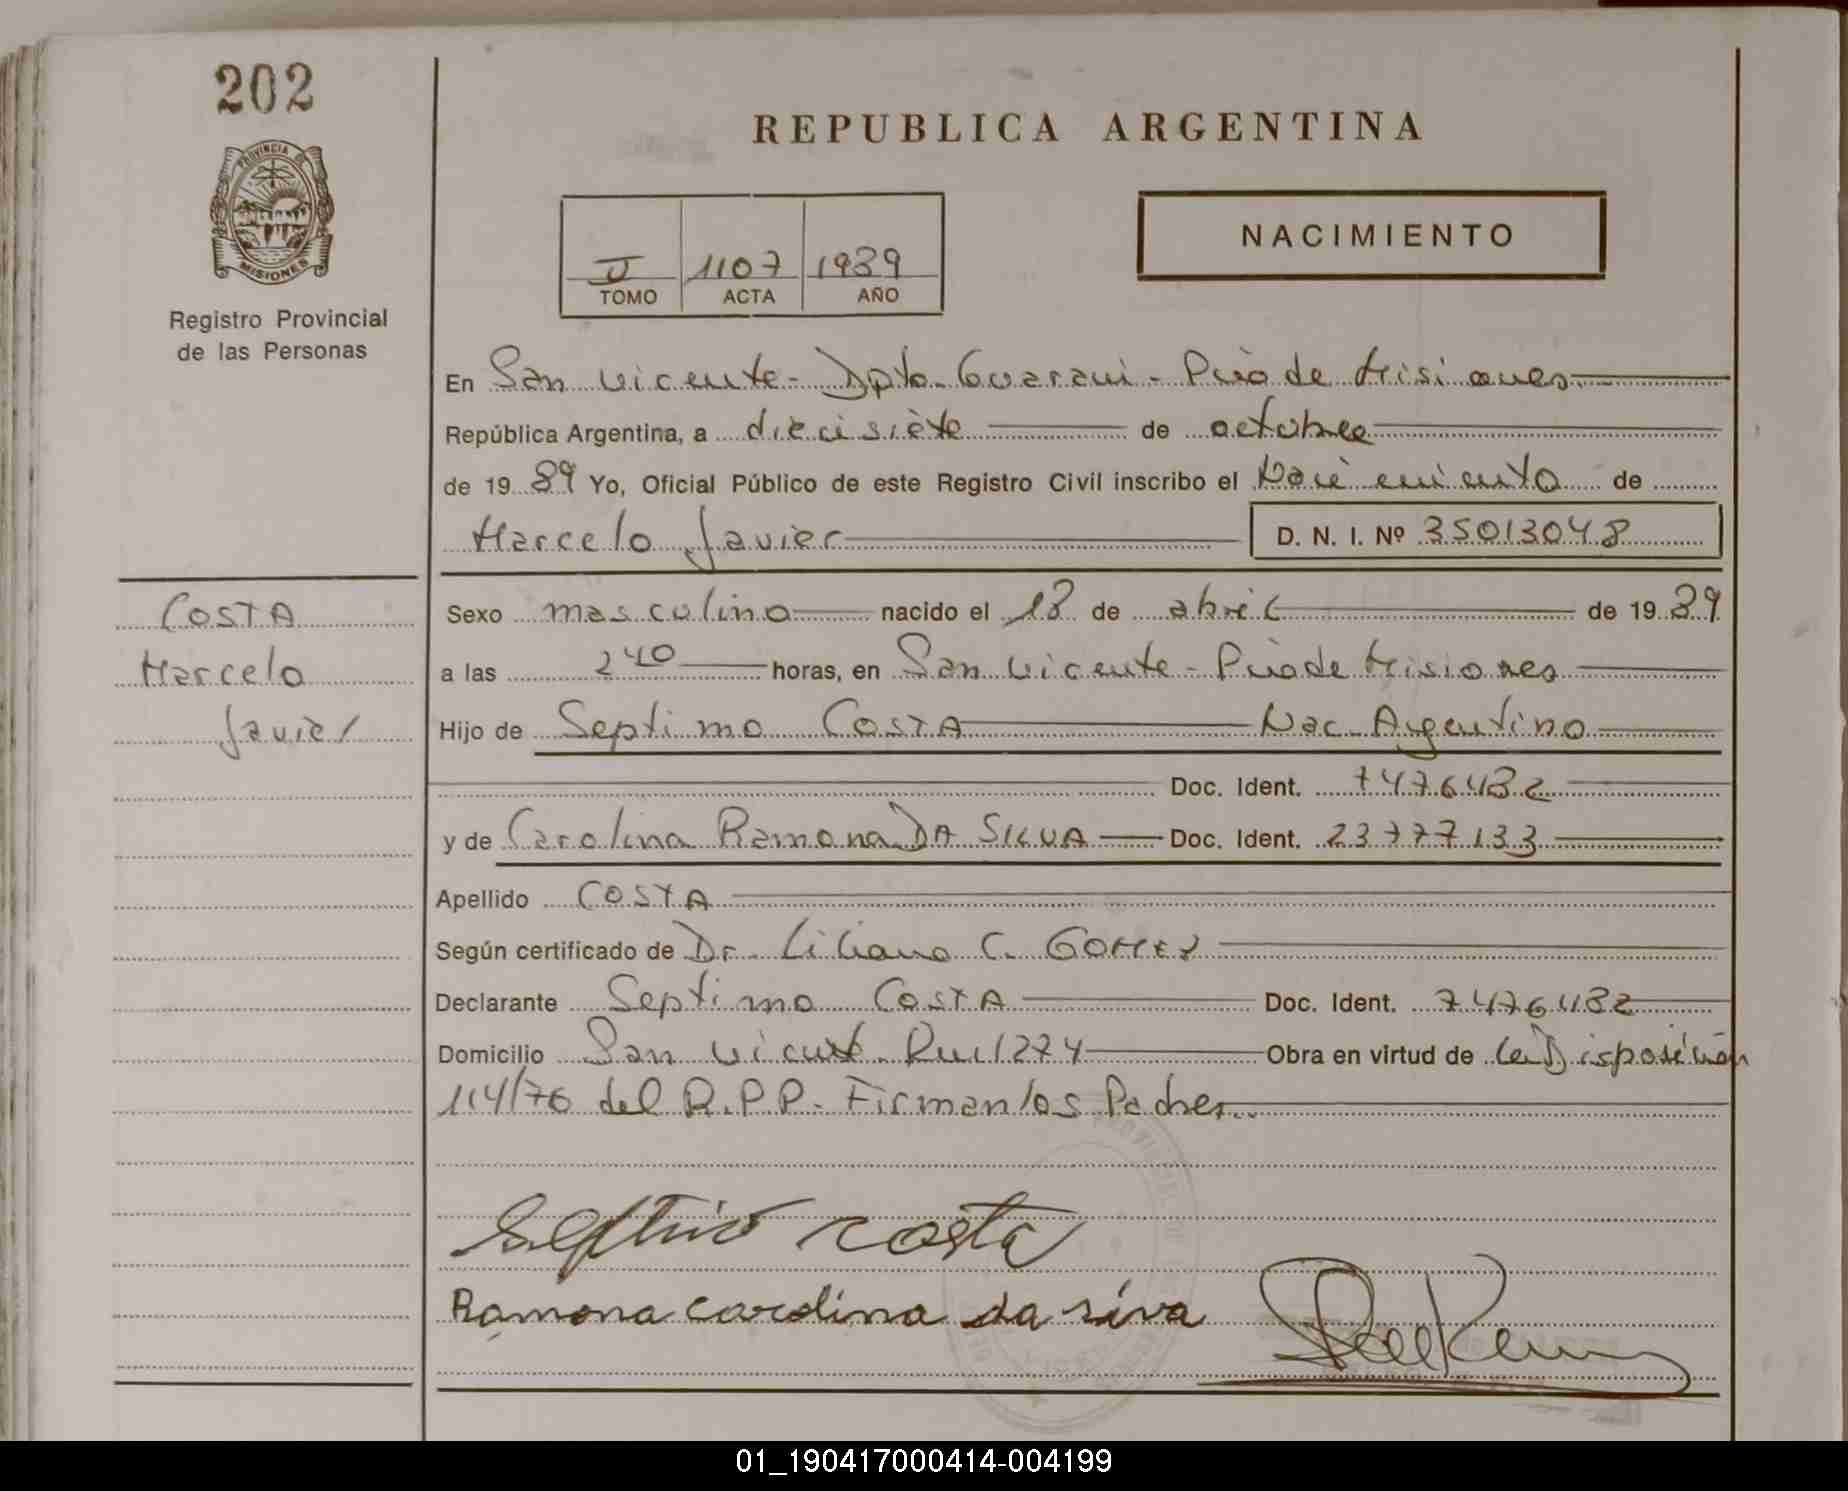 202
PROVINCIA DE
MISIONES
Registro Provincial
de las Personas
REPUBLICA ARGENTINA
NACIMIENTO
II 1107 1989
TOMO ACTA AÑO
En San Vicente - Dpto. Guarani - Pcia de Misiones
República Argentina, a diecisiete de octubre
de 1989 Yo, Oficial Público de este Registro Civil inscribo el Nacimiento de
Marcelo Javier D. N. I. Nº 35013048
COSTA
Marcelo
Javier
Sexo masculino nacido el 18 de abril de 1989
a las 240 horas, en San Vicente - Pcia de Misiones
Hijo de Septimo COSTA Nac. Argentino
Doc. Ident. 7476482
y de Carolina Ramona DA SILVA Doc. Ident. 23777133
Apellido COSTA
Según certificado de Dr. Liliana C. GOMEZ
Declarante Septimo COSTA Doc. Ident. 7476482
Domicilio San Vicente Ruc 1274 Obra en virtud de la Disposición
114/76 del R.P.P. - Firman los Padres..
Septimo costa
Ramona carolina da siva
01_190417000414-004199